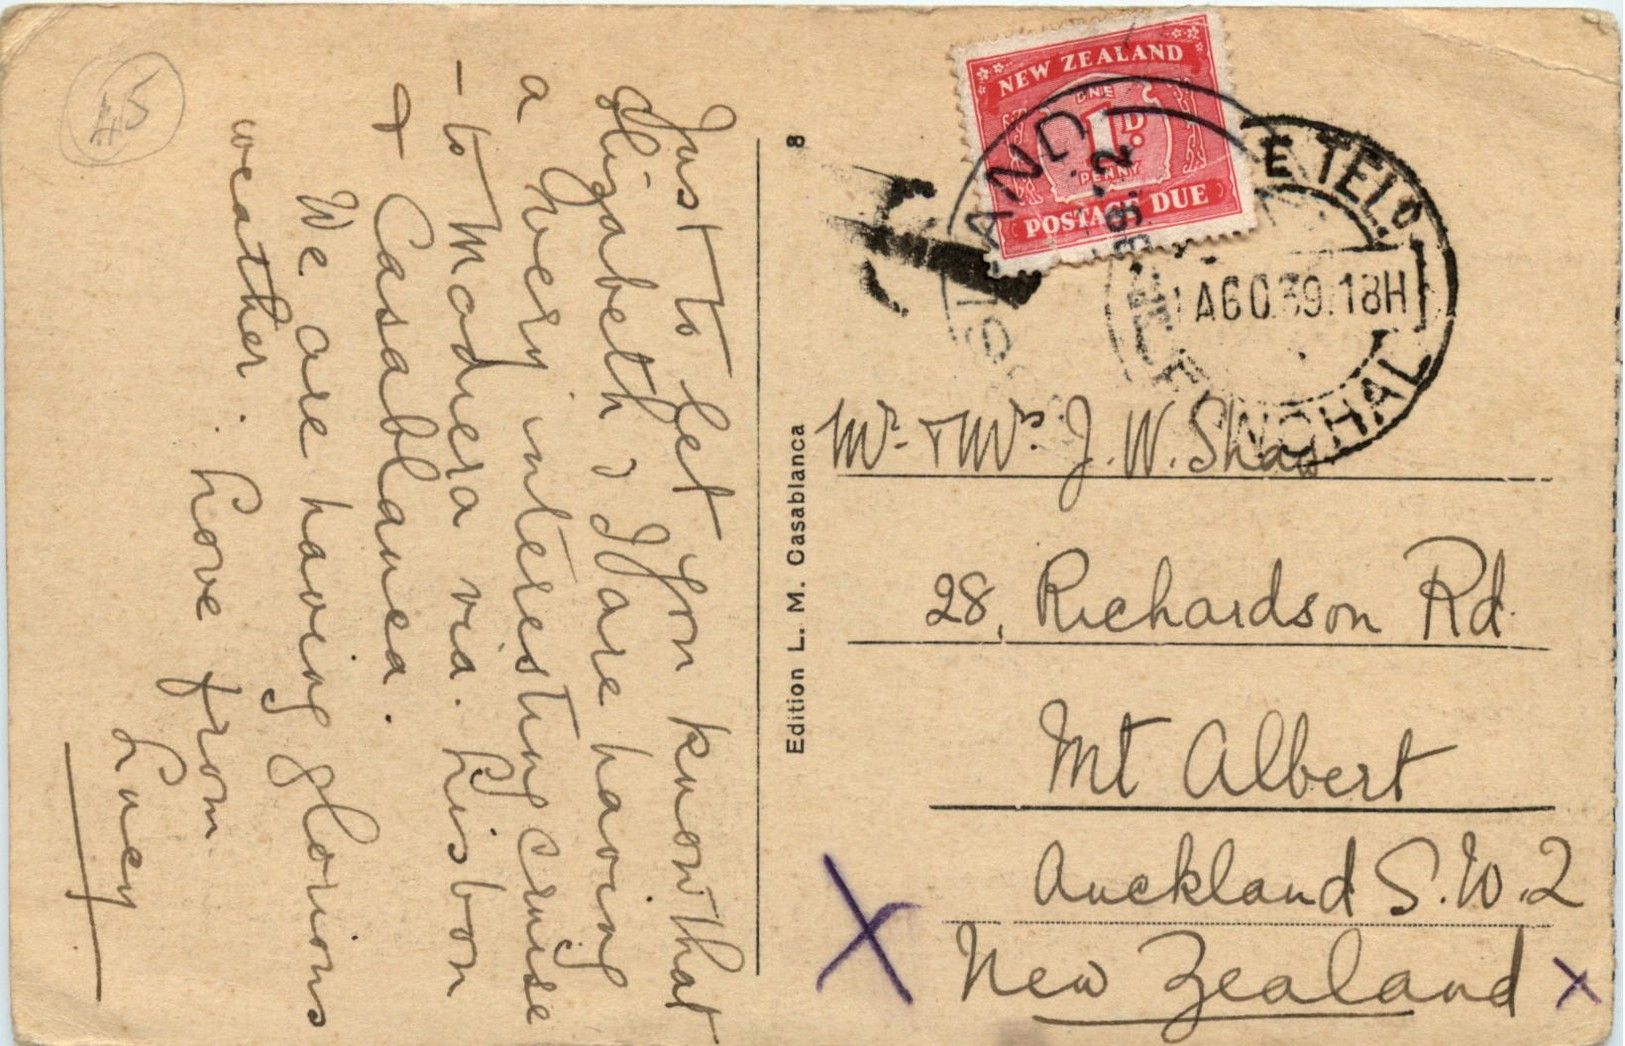 45
Just to let you know that
Elizabeth, I are having
a very interesting cruise
- to Madiera via. Lisbon
& Casablanca.
We are having glorious
weather. Love from
Lucy
8
Edition L. M. Casablanca
NEW ZEALAND
ONE
1D.
PENNY
POSTAGE DUE
LAND
39.12
E TELEG
AGO.39.18H
FUNCHAL
Mr. & Mrs. J. W. Shaw
28, Richardson Rd.
Mt Albert
Auckland S.W.2
New Zealand
X
X